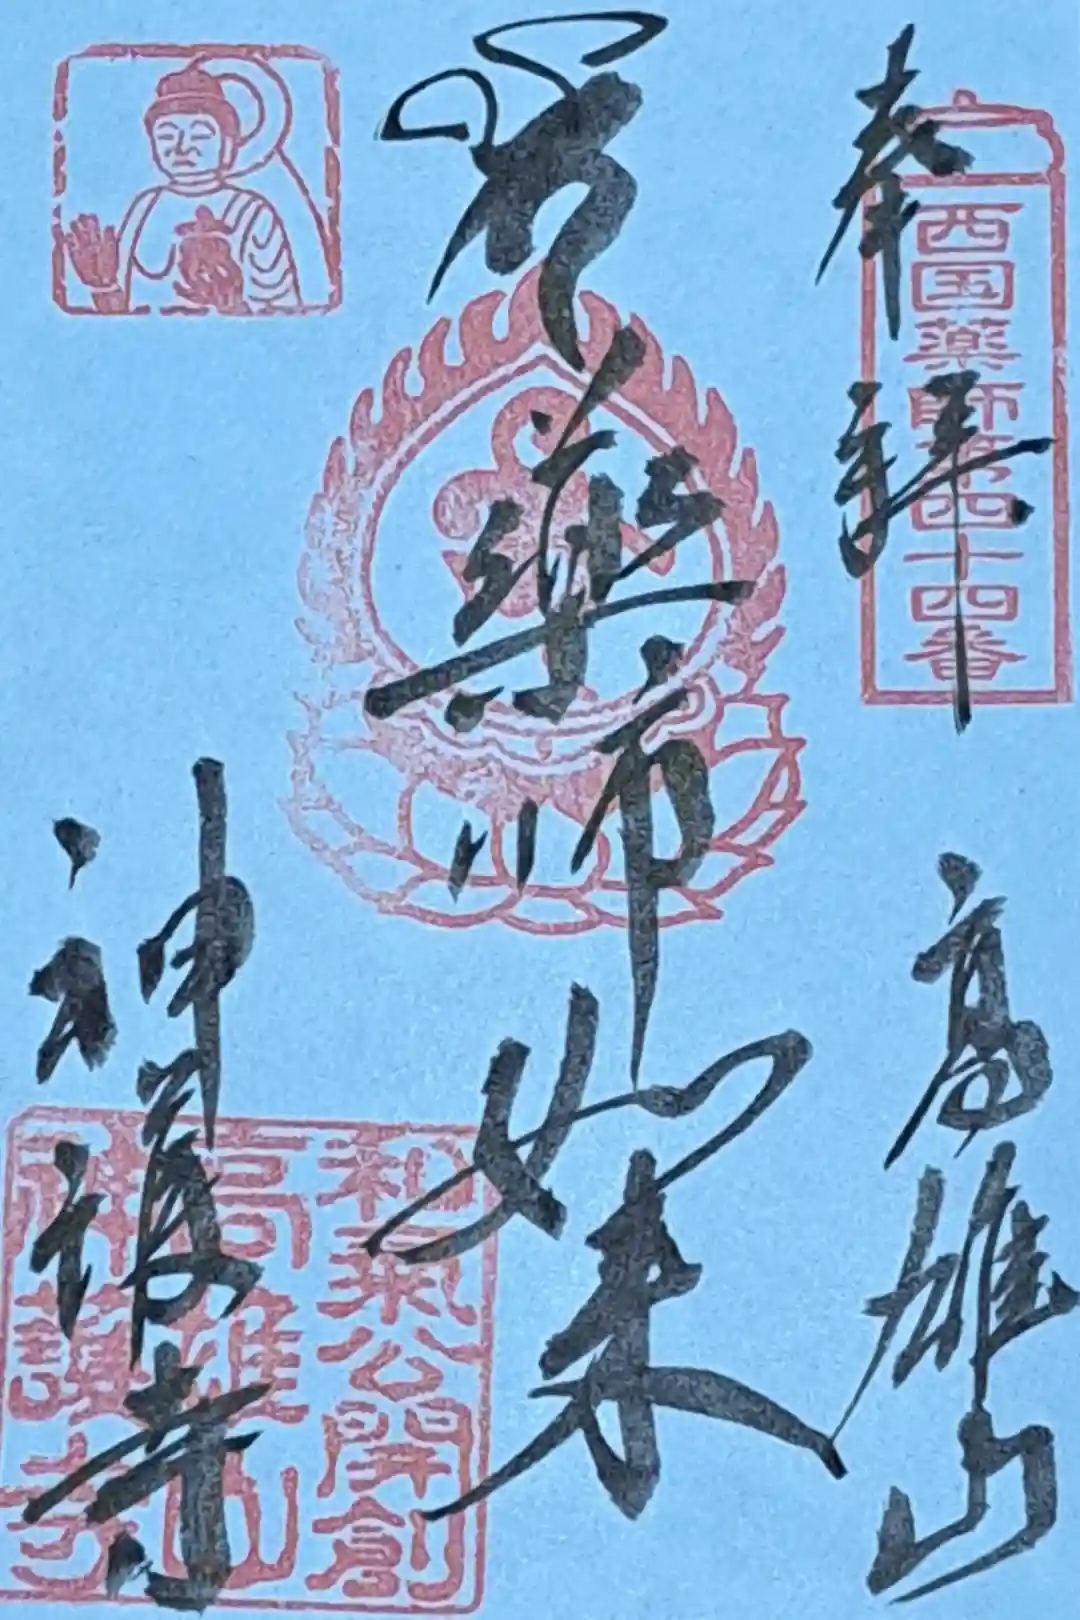 奉拝
西国薬師第四十四番
高雄山
薬師如来
神護寺
和気公開創
高雄山
神護寺